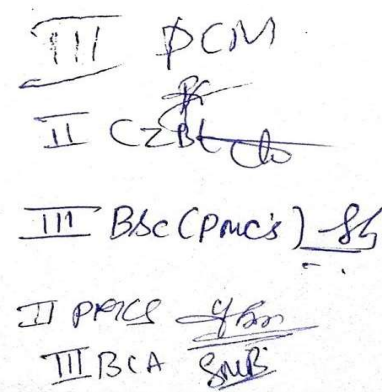 III PCM
II CZBt
III BSc (PMC's)
II PMCS
III BCA SMB